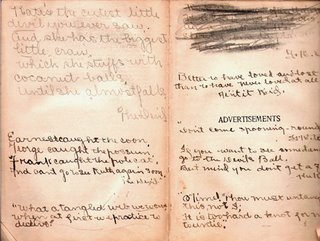 That's the cutest little
devil you ever saw.
And she has the biggest
little craw,
which she stuffs with
cocoanut balls,
Until she almost falls.
Earnest caught the coon,
George caught the possum,
Frank caught the pole cat,
And can't go to see Ruth again soon.
"What a tangled web we weave
When at first we practice to
deceive."
Better to have loved and lost
than to have never loved at all.
Ain't it
ADVERTISEMENTS
"Don't come spooning-round
If you want to see some
go to the Devils Ball.
But mind you don't get a
"O Time! Thou must untangle
this, not I;
It is too hard a knot for me to
untie.